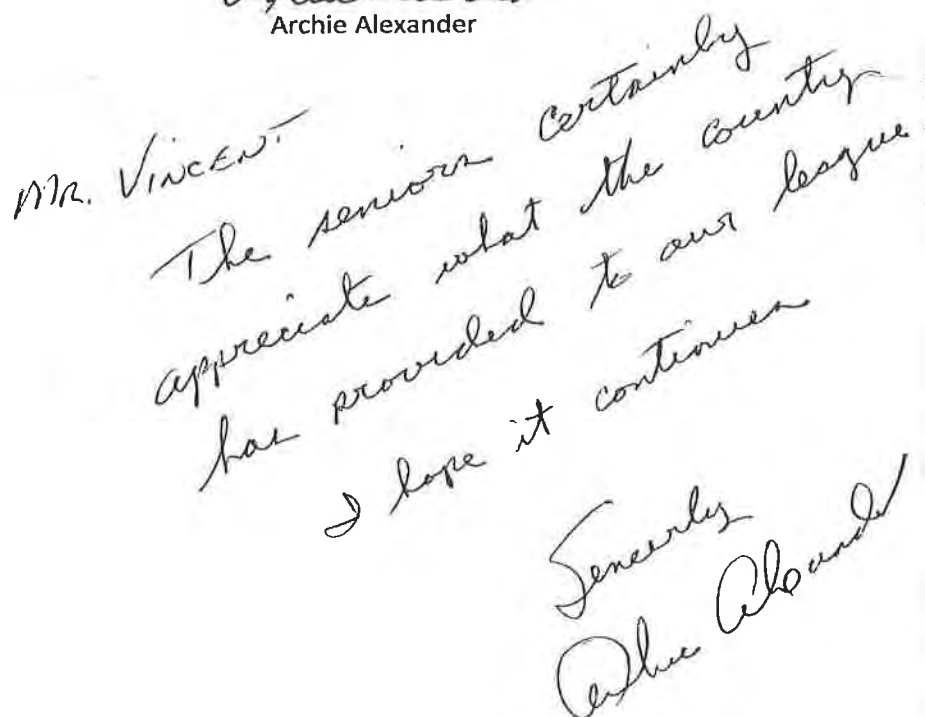 Archie Alexander
Mr. Vincent
The seniors certainly
appreciate what the country
has provided to our league
I hope it continues
Sincerly
Archie Alexander